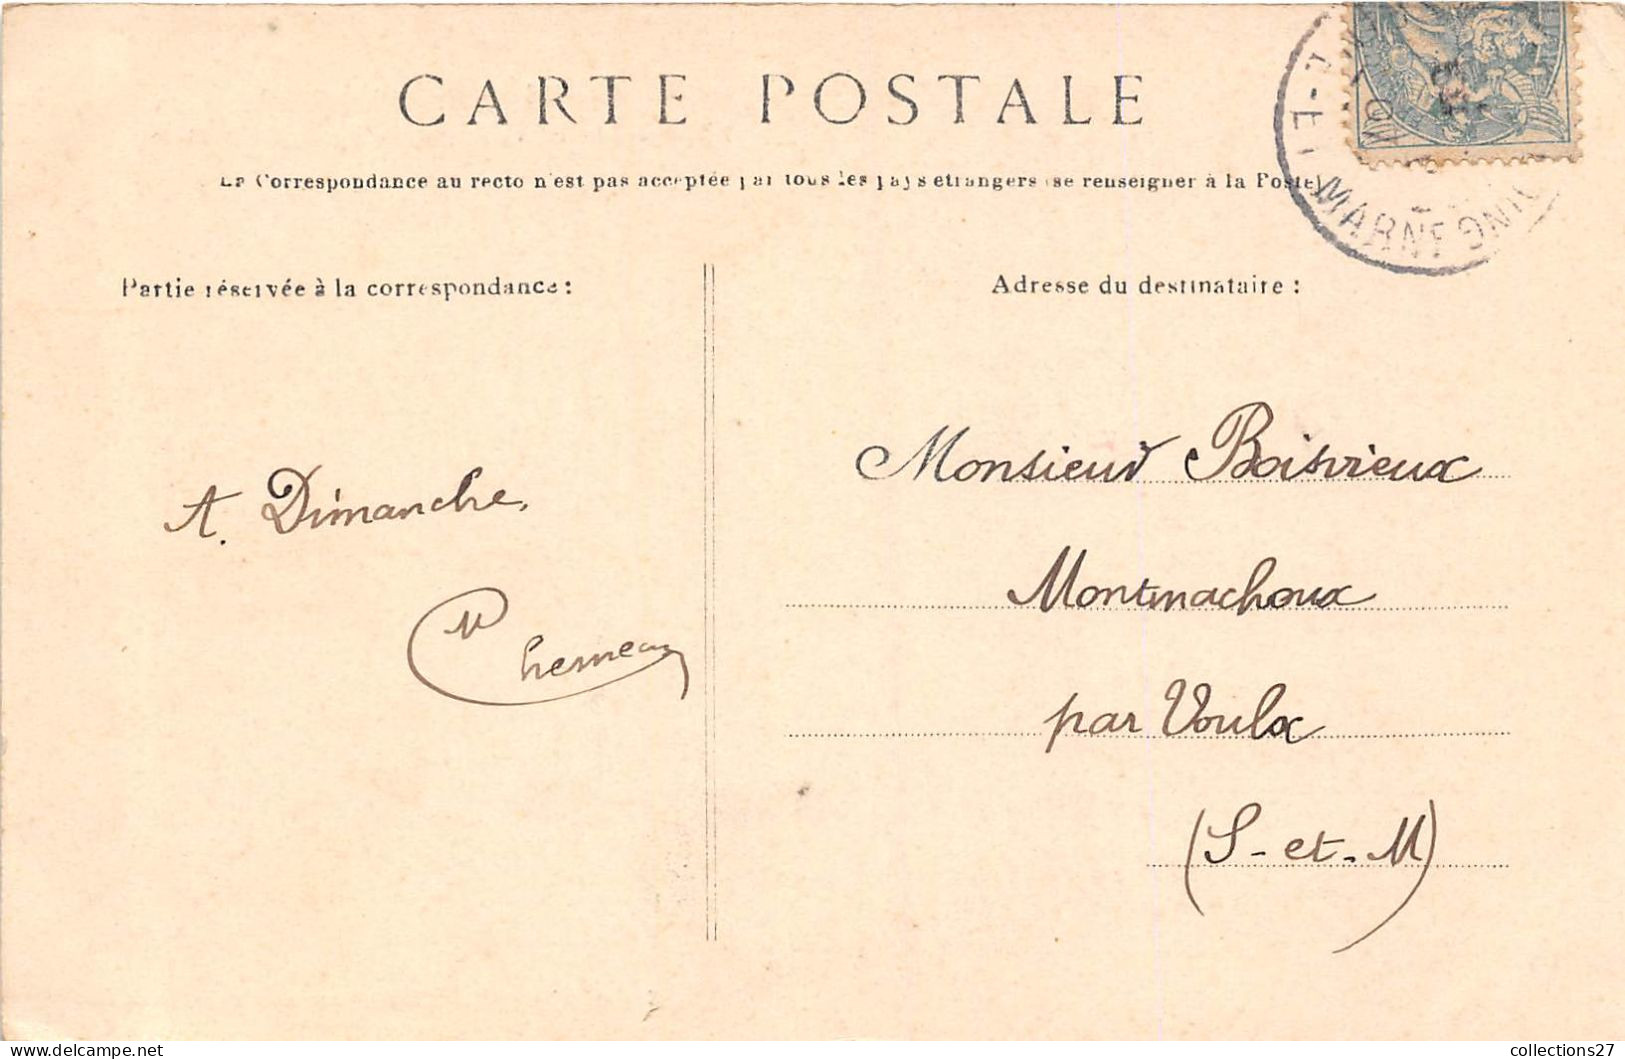 CARTE POSTALE
La Correspondance au recto n'est pas acceptée par tous les pays étrangers (se renseigner à la Poste)
Partie réservée à la correspondance :
Adresse du destinataire :
A. Dimanche,
Monsieur Boisvieux
Montmachoux
par Voulx
(S-et-M)
MARNE
collections27